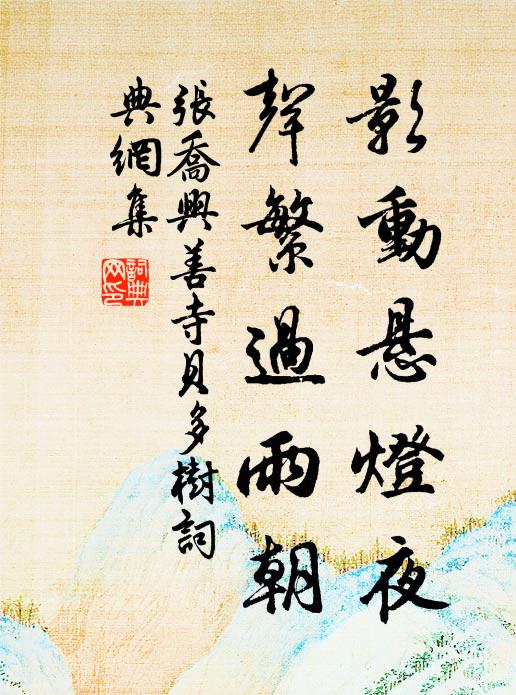 影動悬燈夜
聲繁過雨朝
張喬興善寺貝多樹詞
典網集
詞典
网印